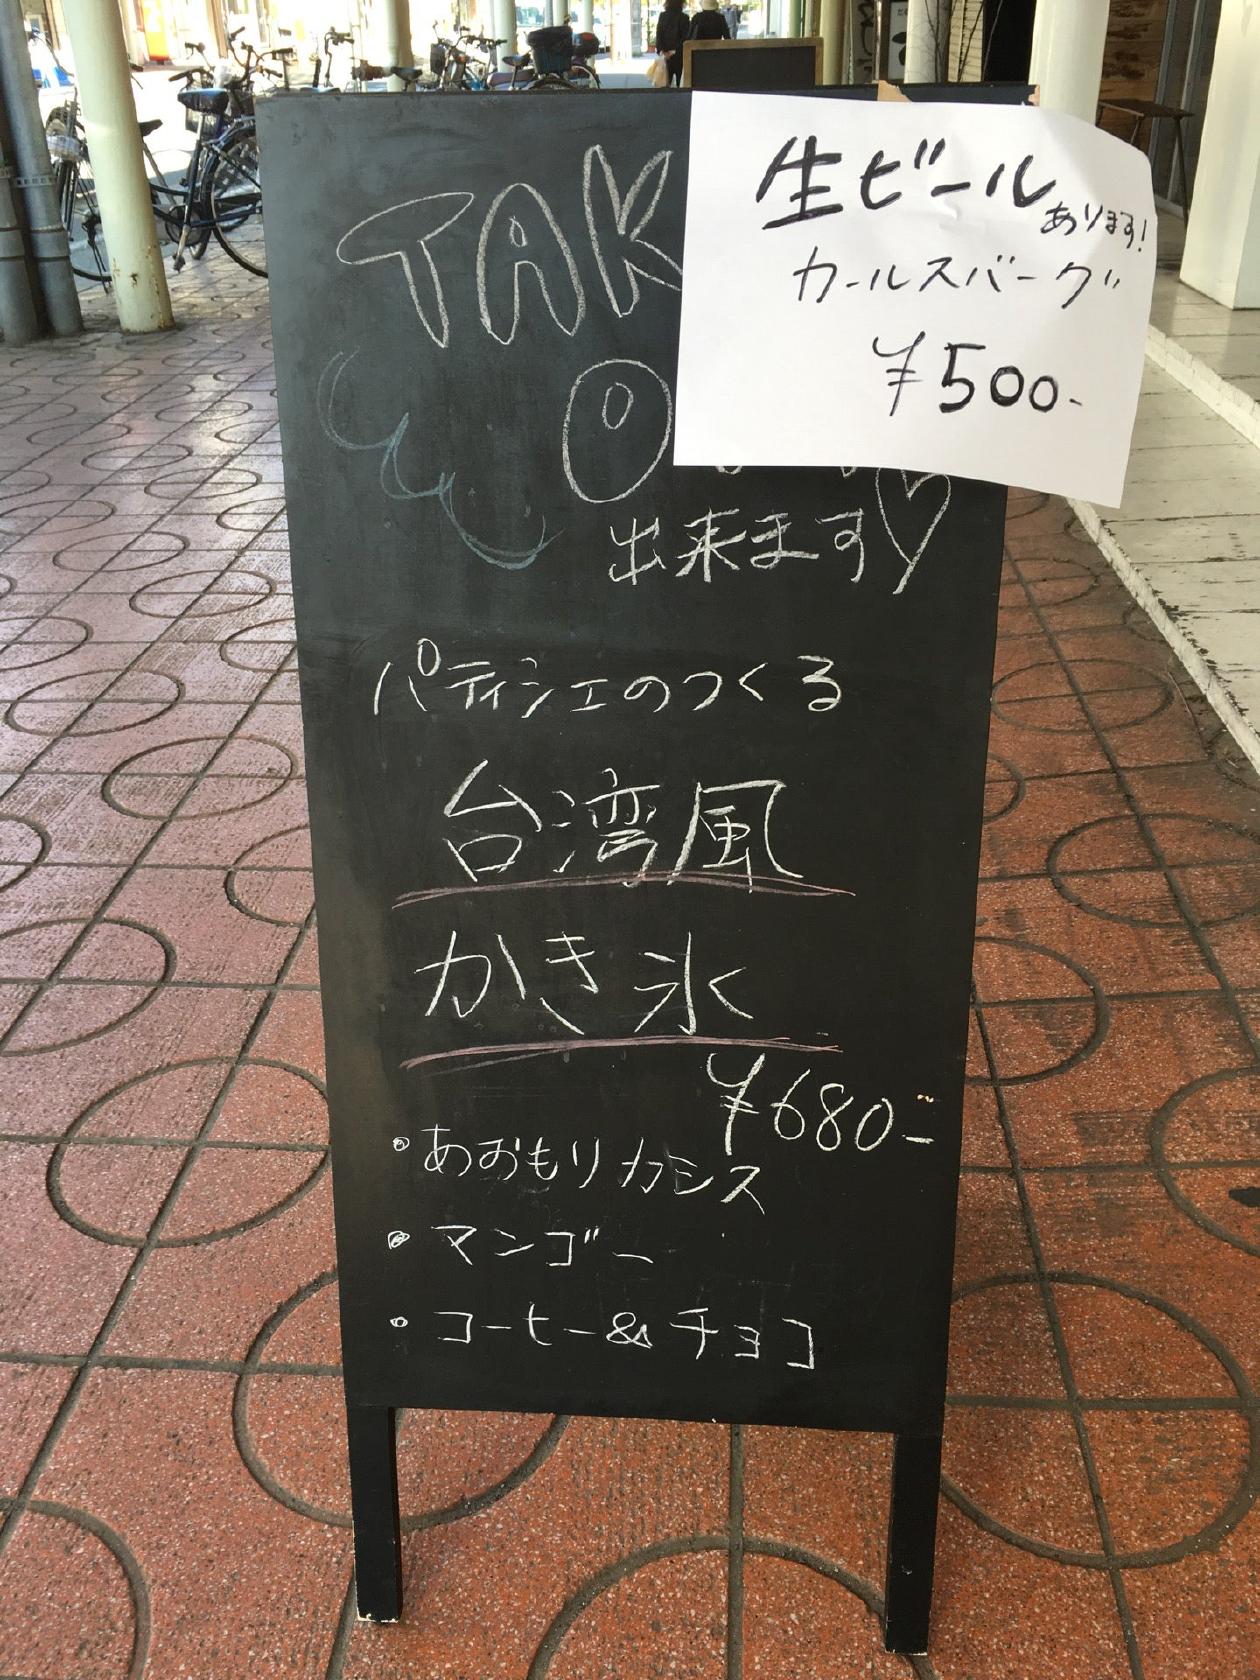 生ビール
あります!
カールスバーグ
¥500-
TAK
O
出来ます
パティシェのつくる
台湾風
かき氷
¥680-
・あおもりカシス
・マンゴー
・コーヒー&チョコ